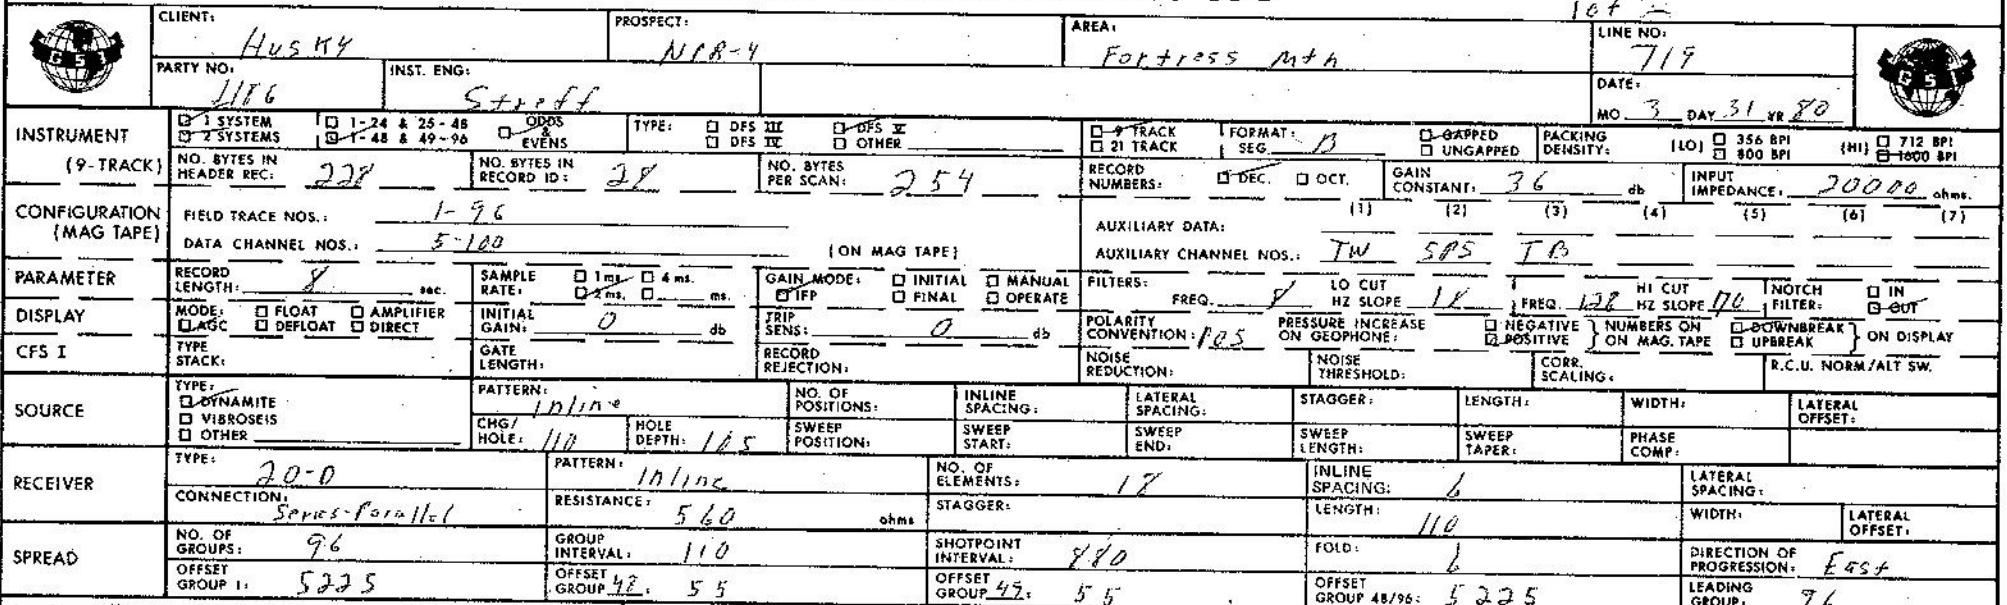 1 of 2
CLIENT: Husky PROSPECT: NPR-4 AREA: Fortress Mtn LINE NO: 719
GSI
PARTY NO: 1186 INST. ENG: Streff DATE: MO 3 DAY 31 YR 80
GSI
INSTRUMENT (9-TRACK) 1 SYSTEM 1-24 & 25-48 ODDS & EVENS TYPE: DFS III DFS V 9 TRACK FORMAT: SEG B GAPPED PACKING DENSITY: (LO) 356 BPI (HI) 712 BPI
2 SYSTEMS 1-48 & 49-96 DFS IV OTHER 21 TRACK UNGAPPED 800 BPI 1600 BPI
NO. BYTES IN HEADER REC: 228 NO. BYTES IN RECORD ID: 28 NO. BYTES PER SCAN: 254 RECORD NUMBERS: DEC. OCT. GAIN CONSTANT: 36 db INPUT IMPEDANCE: 20000 ohms.
CONFIGURATION (MAG TAPE) FIELD TRACE NOS.: 1-96 AUXILIARY DATA: (1) (2) (3) (4) (5) (6) (7)
DATA CHANNEL NOS.: 5-100 (ON MAG TAPE) AUXILIARY CHANNEL NOS.: TW SPS TB
PARAMETER RECORD LENGTH: 8 sec. SAMPLE RATE: 1 ms. 4 ms. 2 ms. ms. GAIN MODE: INITIAL MANUAL IFP FINAL OPERATE FILTERS: FREQ. 8 LO CUT HZ SLOPE 18 FREQ. 128 HI CUT HZ SLOPE 70 NOTCH FILTER: IN OUT
DISPLAY MODE: FLOAT AMPLIFIER AGC DEFLOAT DIRECT INITIAL GAIN: 0 db TRIP SENS: 0 db POLARITY CONVENTION: POS PRESSURE INCREASE ON GEOPHONE: NEGATIVE POSITIVE NUMBERS ON MAG. TAPE DOWNBREAK UPBREAK ON DISPLAY
CFS I TYPE STACK: GATE LENGTH: RECORD REJECTION: NOISE REDUCTION: NOISE THRESHOLD: CORR. SCALING: R.C.U. NORM/ALT SW.
SOURCE TYPE: DYNAMITE VIBROSEIS OTHER PATTERN: Inline NO. OF POSITIONS: INLINE SPACING: LATERAL SPACING: STAGGER: LENGTH: WIDTH: LATERAL OFFSET:
CHG/HOLE: 110 HOLE DEPTH: 105 SWEEP POSITION: SWEEP START: SWEEP END: SWEEP LENGTH: SWEEP TAPER: PHASE COMP:
RECEIVER TYPE: 20-D PATTERN: Inline NO. OF ELEMENTS: 18 INLINE SPACING: 6 LATERAL SPACING:
CONNECTION: Series-Parallel RESISTANCE: 560 ohms STAGGER: LENGTH: 110 WIDTH: LATERAL OFFSET:
SPREAD NO. OF GROUPS: 96 GROUP INTERVAL: 110 SHOTPOINT INTERVAL: 880 FOLD: 6 DIRECTION OF PROGRESSION: East
OFFSET GROUP 1: 5225 OFFSET GROUP 48: 55 OFFSET GROUP 49: 55 OFFSET GROUP 48/96: 5225 LEADING GROUP: 96